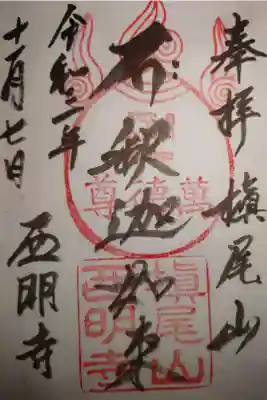 奉拝 槇尾山
釈迦如来
令和二年
十一月七日 西明寺
萬徳尊
槇尾山
西明寺